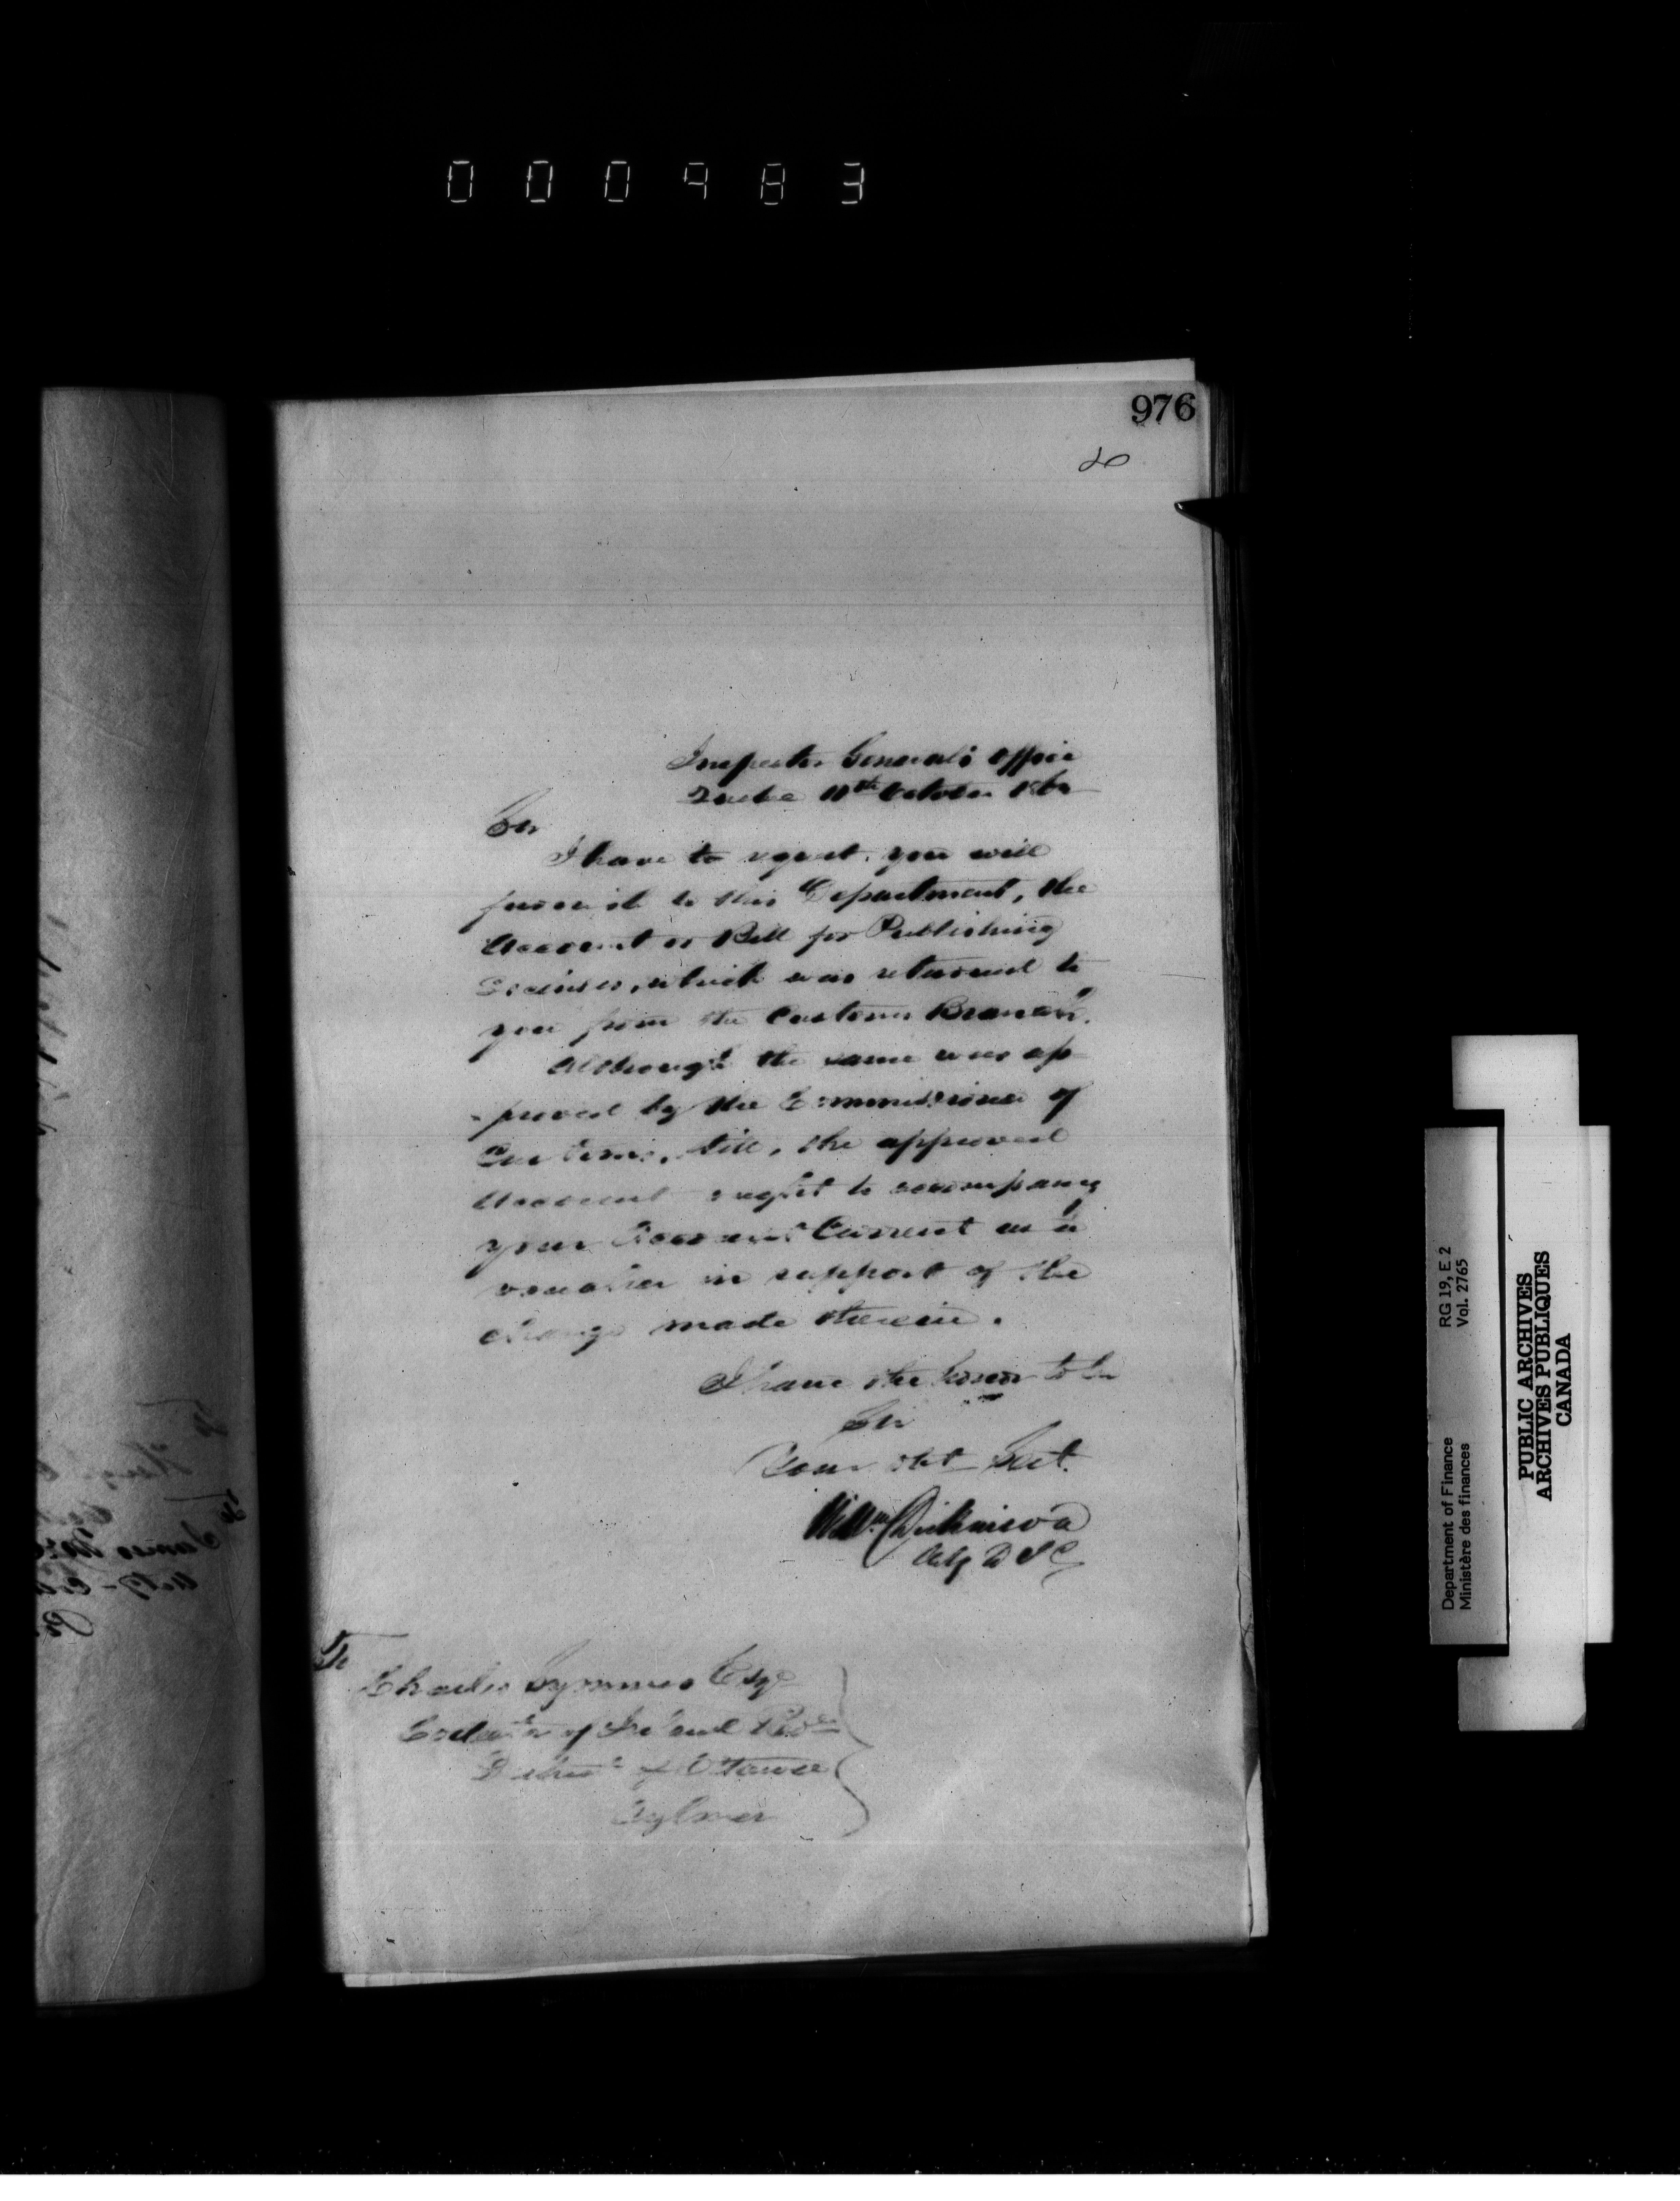 000983
976
Inspector General's Office
Quebec 11th October 186
Sir
I have to request, you will
furnish to this Department, the
Account or Bill for Publishing
Licenses, which was returned to
you from the Customs Branch.
Although the same was ap
-proved by the Commissioner of
Customs, still, the approved
Account ought to accompany
your Account Current as a
voucher in support of the
charge made therein.
I have the honor to be
Sir
Your Obt Sert.
Willm Dickinson
Actg D I G
To
Charles Symmes Esqr
Collector of Inland Rev
District of Ottawa
Aylmer
Department of Finance RG 19, E 2
Ministère des finances Vol. 2765
PUBLIC ARCHIVES
ARCHIVES PUBLIQUES
CANADA